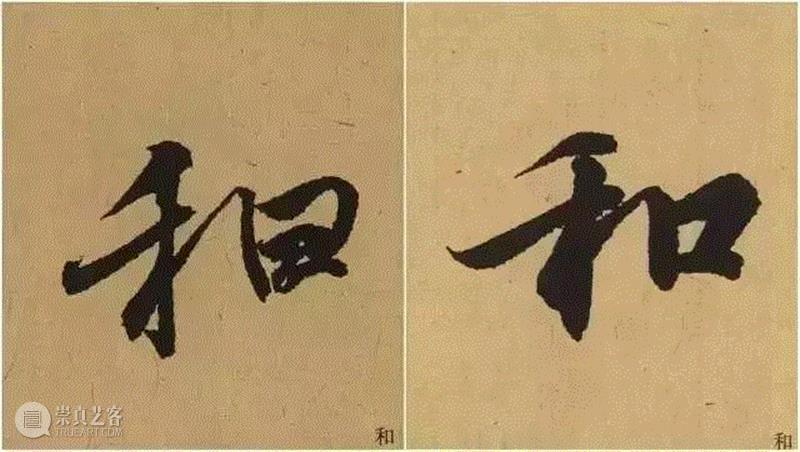 和 和
和 和
崇真艺客
TRUEART.COM